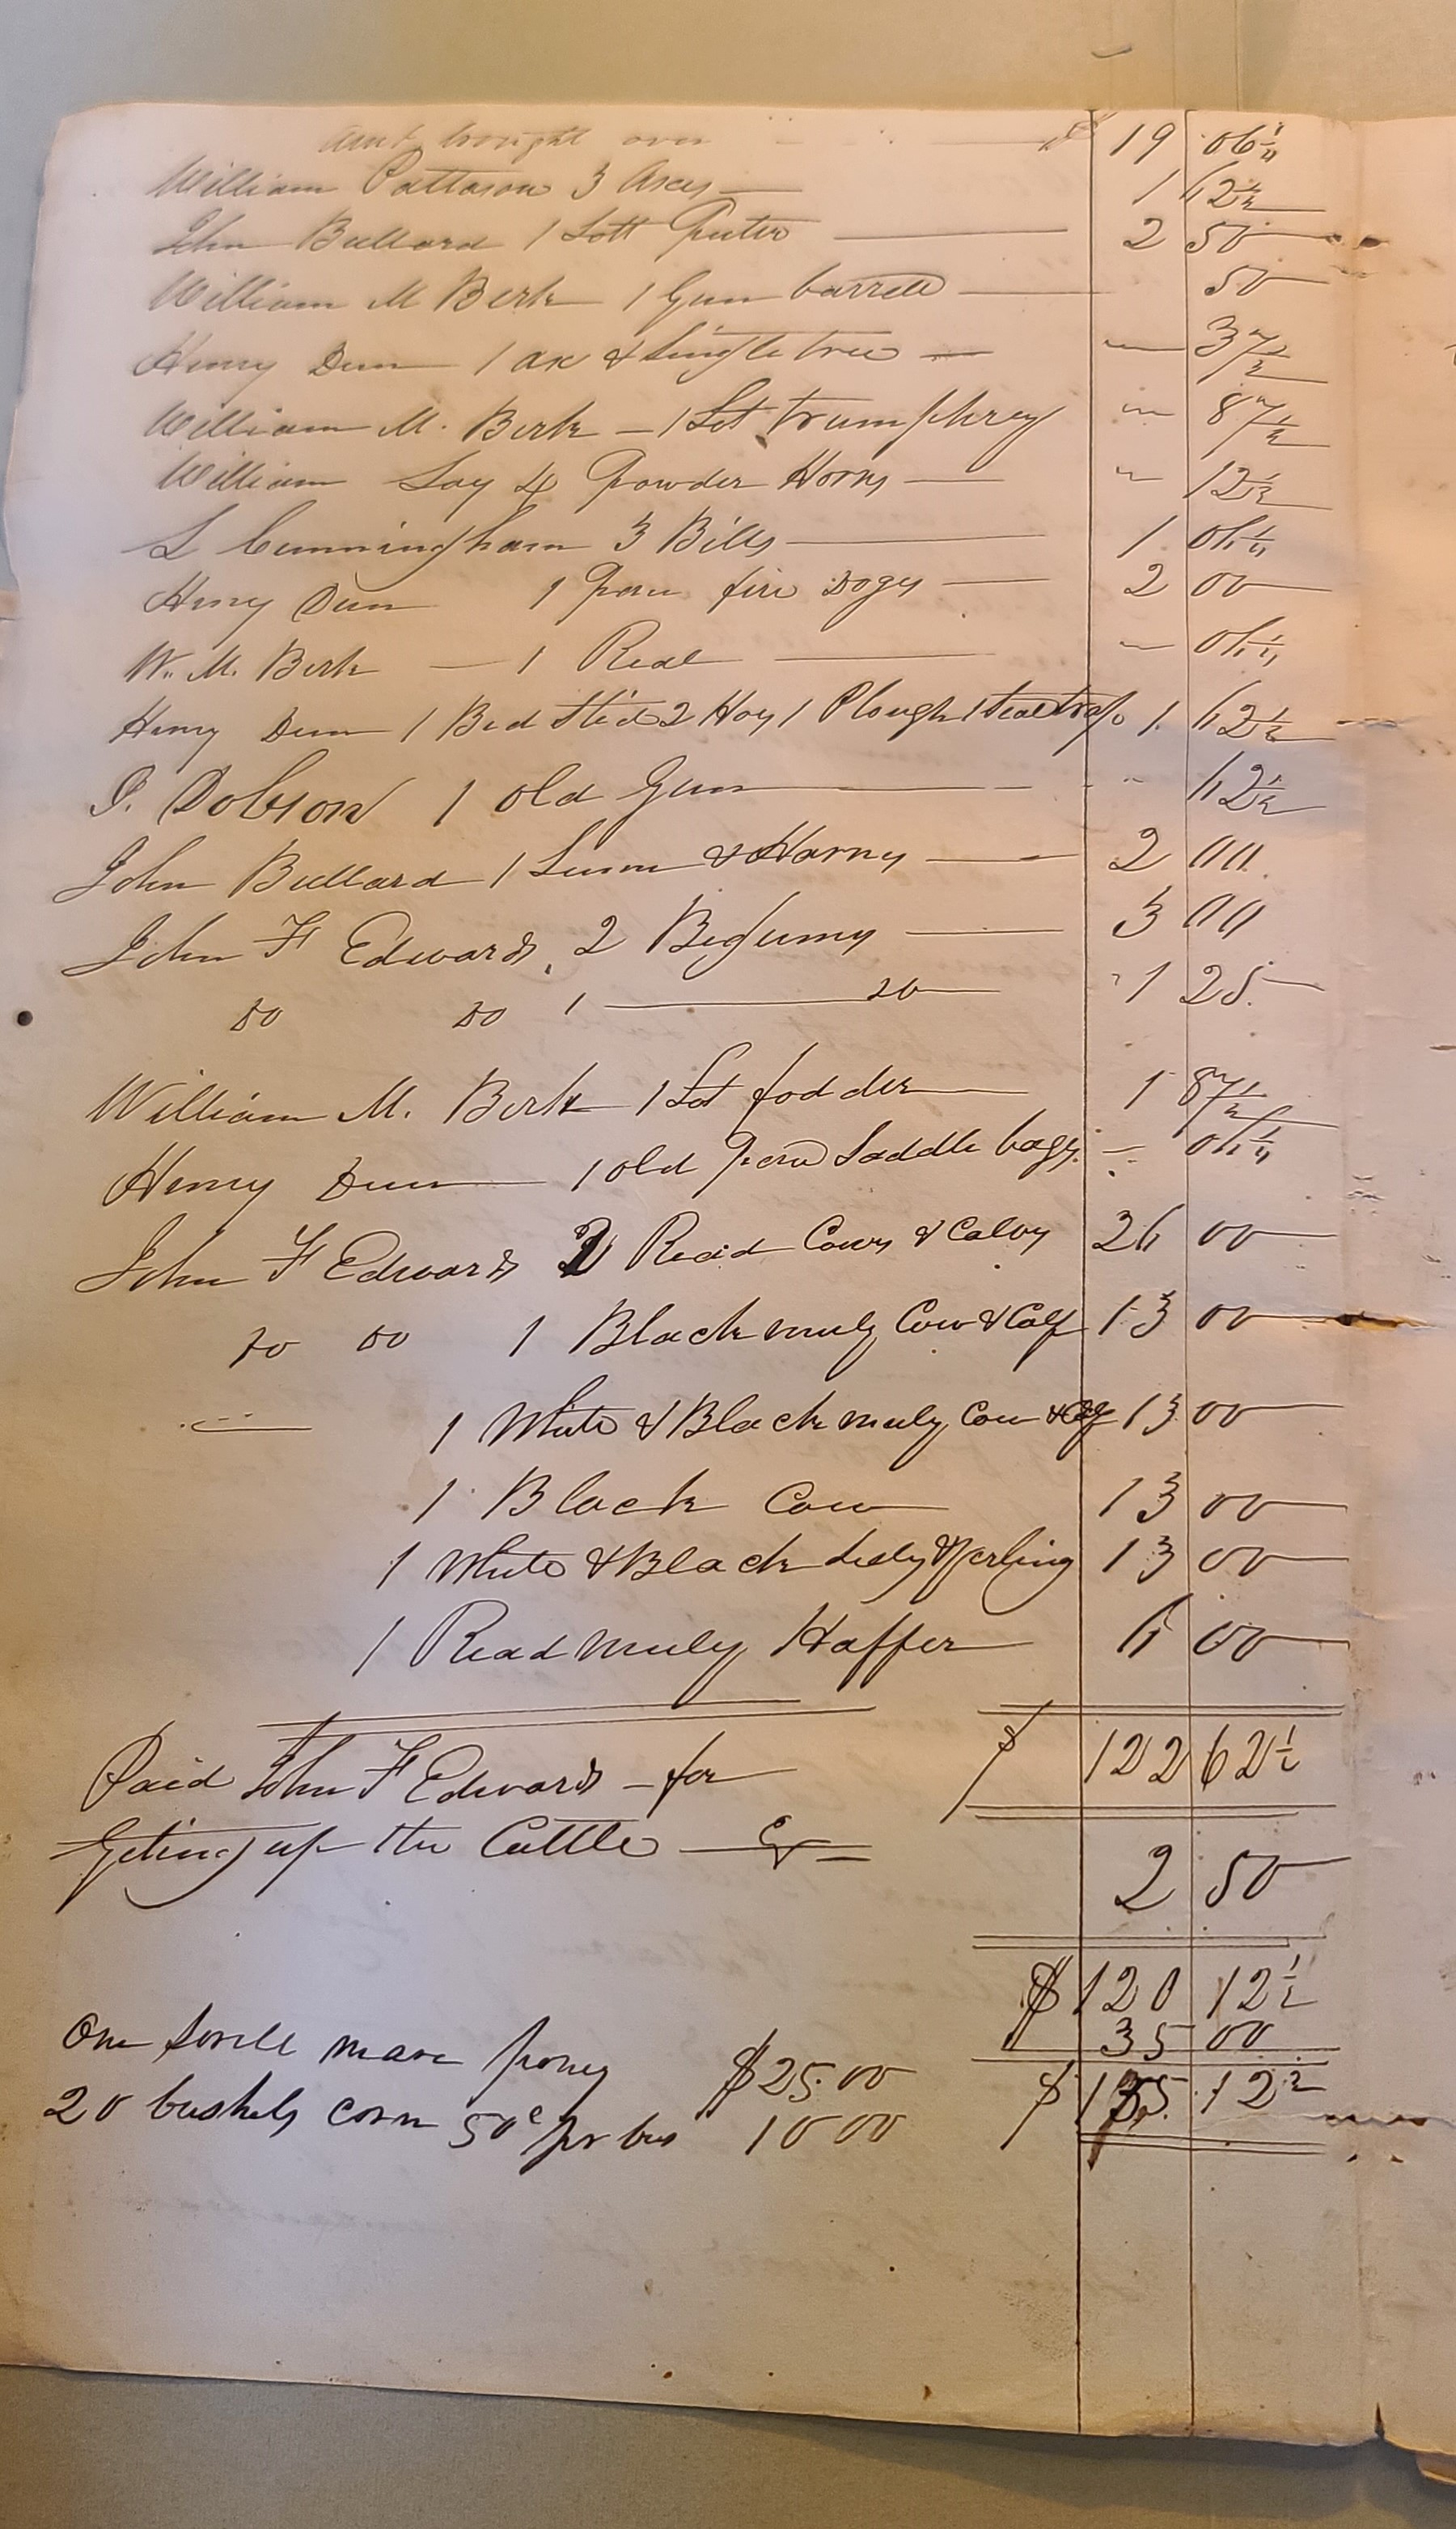 Amt brought over $ 19 06 1/4
William Pattason 3 Axes 1 62 1/2
John Bullard 1 Lott Puter 2 50
William M Berk 1 Gun barrell 50
Henry Dun 1 ax & Singletree 37 1/2
William M. Berk 1 Lot 87 1/2
William Lay 4 Powder Horns 12 1/2
L Cunningham 3 Bills 1 06 1/4
Henry Dun 1 Pare fire Dogs 2 00
W. M. Berk 1 Real 06 1/4
Henry Dun 1 Bed Sted 2 Hoy 1 Plough 1 1 62 1/2
I. Dobson 1 old Gun 62 1/2
John Bullard 1 Lumm & Harny 2 00
John F Edwards 2 3 00
Do Do 1 Do 1 25
William M. Berk 1 Lot fodder 1 87 1/2
Henry Dun 1 old Pare Saddle bags 06 1/4
John F Edwards 2 Read Cows & Calvs 26 00
Do Do 1 Black muly Cow & Calf 13 00
1 White & Black muly Cow & Calf 13 00
1 Black Cow 13 00
1 White & Black & yerling 13 00
1 Read muly Haffer 6 00
$ 122 62 1/2
Paid John F Edwards for
Geting up the Cattle 2 50
$ 120 12 1/2
35 00
One Sorell mare pony $25.00 $ 155. 12 1/2
20 bushels corn 50c pr bus 10 00